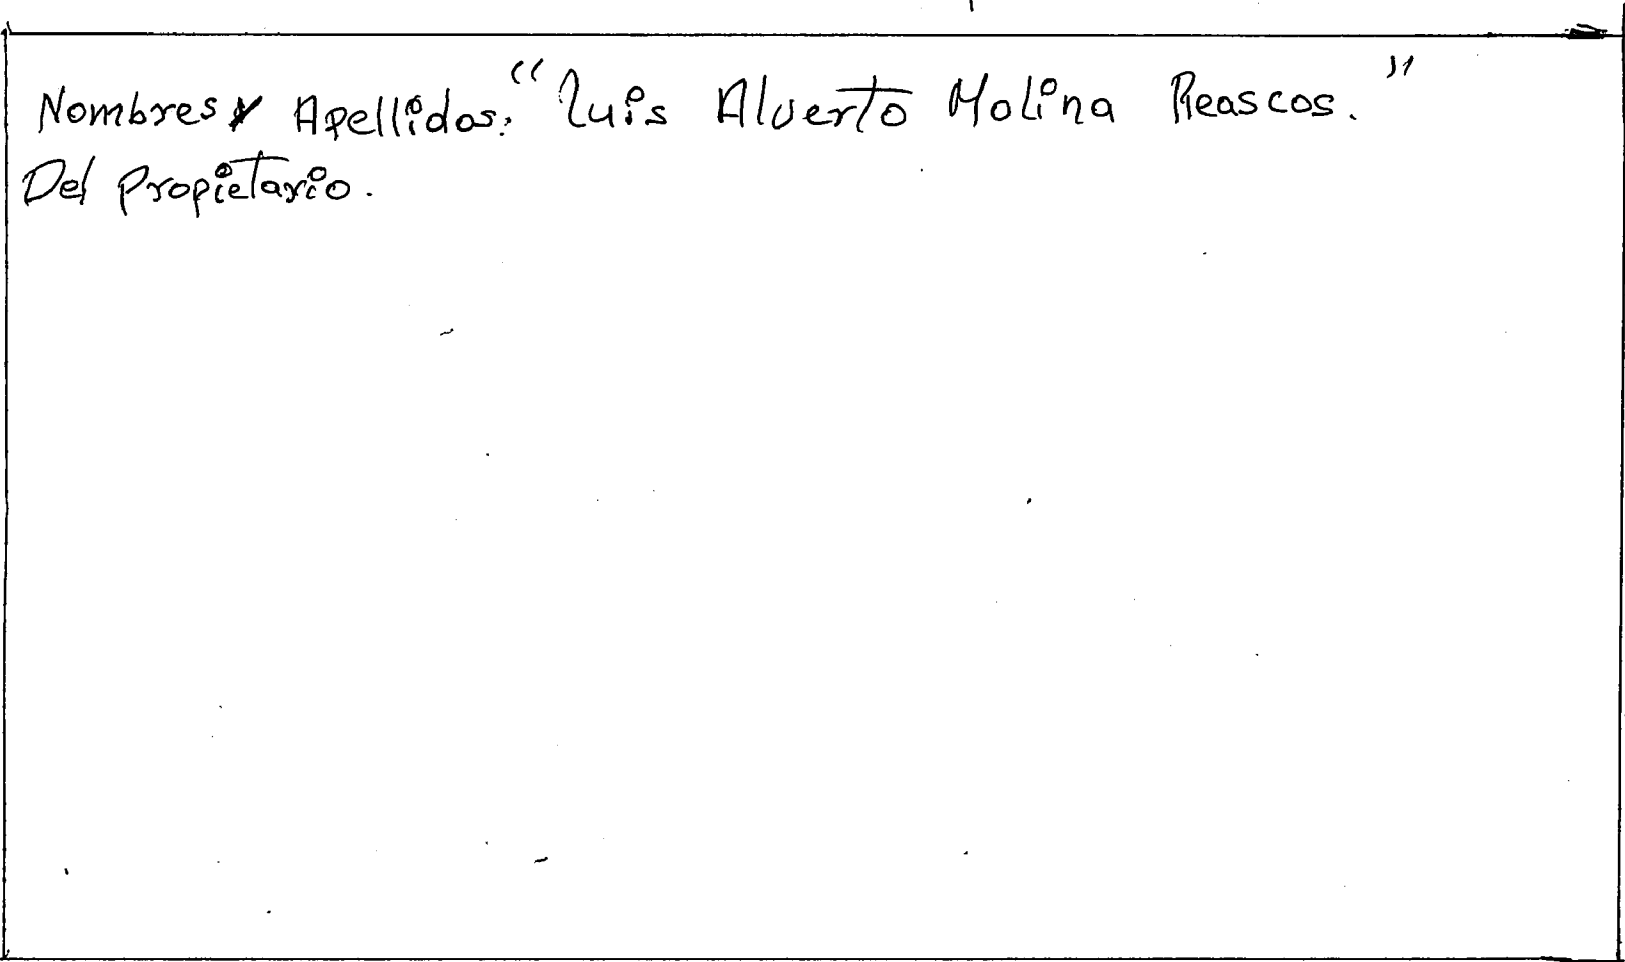 Nombres y Apellidos: "Luis Alverto Molina Reascos."
Del Propietario.